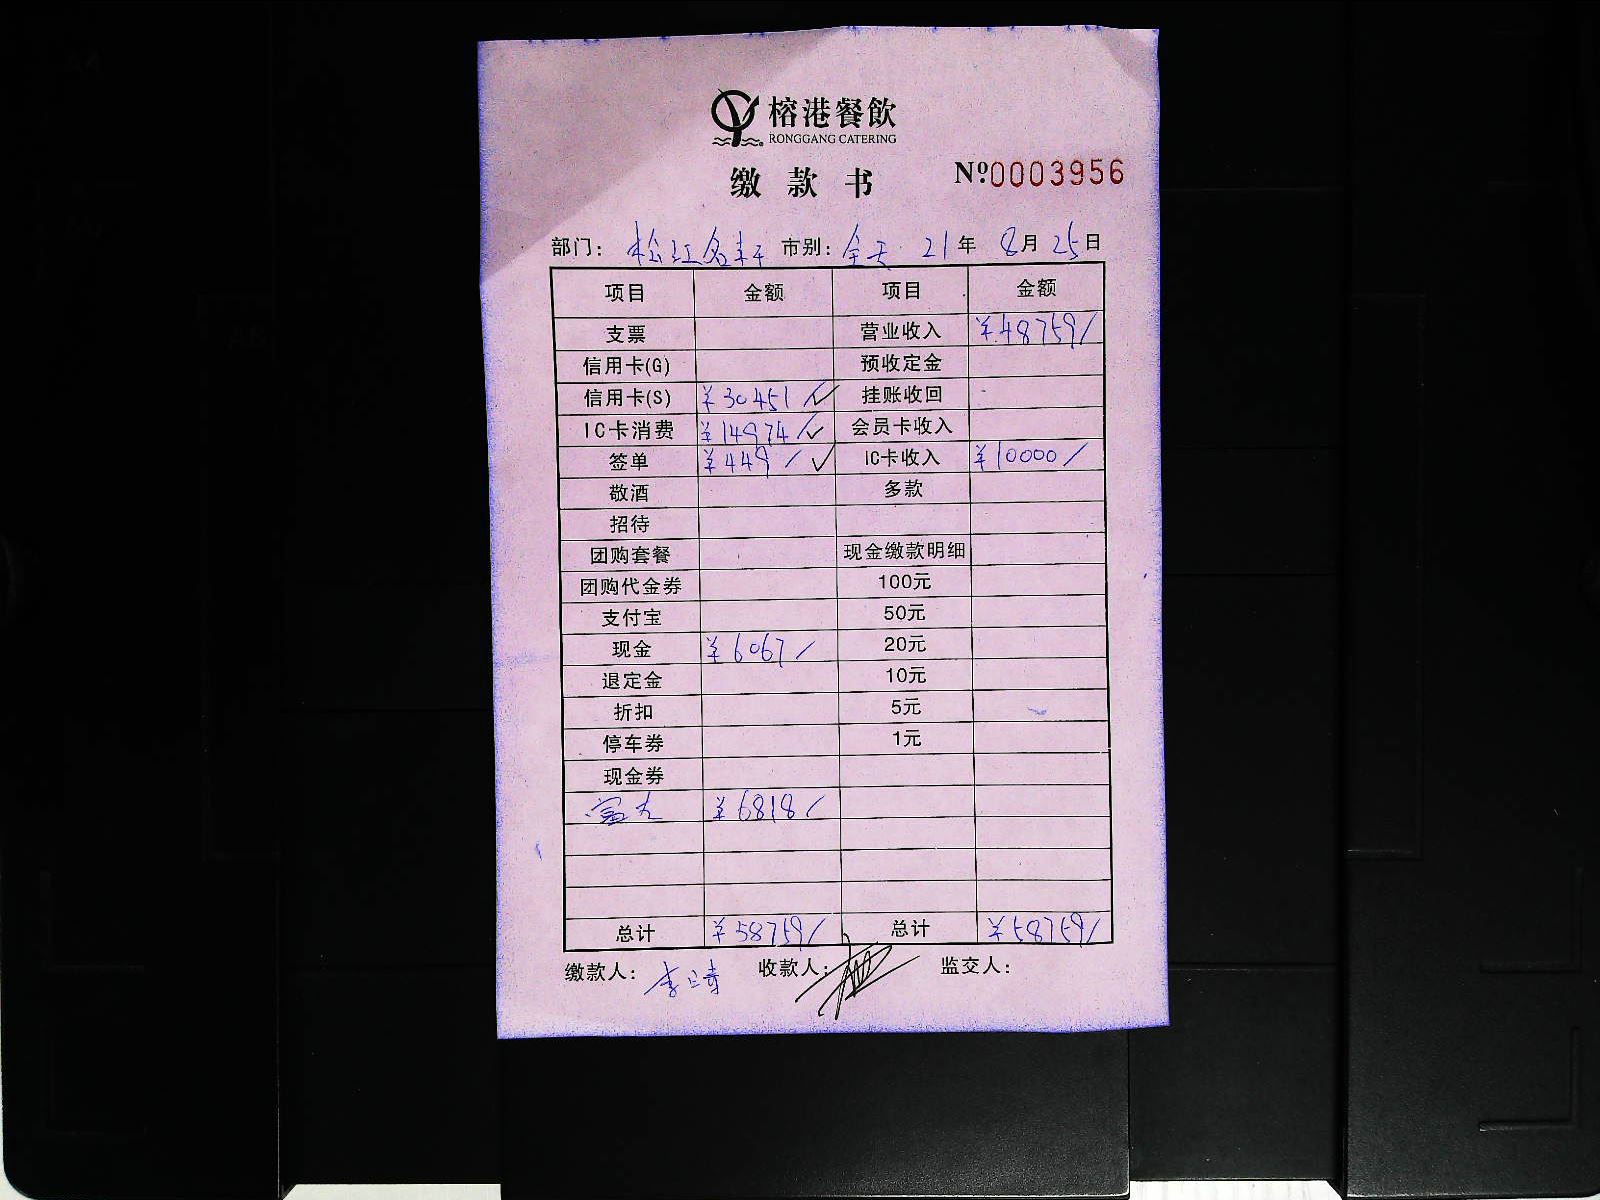 榕港餐飲
RONGGANG CATERING
缴款书 Nº0003956
部门: 松江名轩 市别: 全天 21年 8月 25日
项目 金额 项目 金额
支票 营业收入 ¥48759/
信用卡(G) 预收定金
信用卡(S) ¥30451/✓ 挂账收回
IC卡消费 ¥14974/✓ 会员卡收入
签单 ¥449/✓ IC卡收入 ¥10000/
敬酒 多款
招待
团购套餐 现金缴款明细
团购代金券 100元
支付宝 50元
现金 ¥6067/ 20元
退定金 10元
折扣 5元
停车券 1元
现金券
¥6818/
总计 ¥58759/ 总计 ¥58759/
缴款人: 收款人: 监交人: